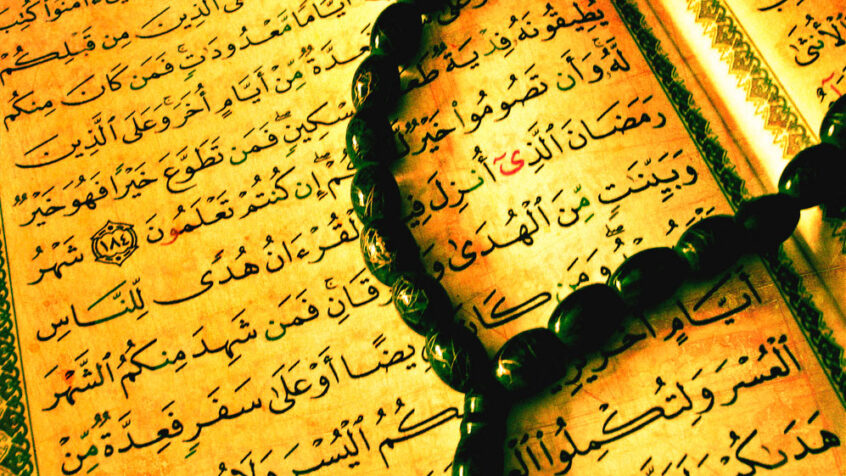 ءَامَنُوا۟ كُتِبَ
ٱلَّذِينَ مِن قَبْلِكُمْ
أَيَّامًا مَّعْدُودَٰتٍ ۚ فَمَن كَانَ مِنكُم
فَعِدَّةٌ مِّنْ أَيَّامٍ أُخَرَ ۚ وَعَلَى ٱلَّذِينَ
يُطِيقُونَهُۥ فِدْيَةٌ مِسْكِينٍ ۖ فَمَن تَطَوَّعَ خَيْرًا فَهُوَ خَيْرٌ
لَّهُۥ ۚ وَأَن تَصُومُوا۟ خَيْرٌ لَّكُمْ ۖ إِن كُنتُمْ تَعْلَمُونَ ١٨٤ شَهْرُ
رَمَضَانَ ٱلَّذِىٓ أُنزِلَ فِيهِ ٱلْقُرْءَانُ هُدًى لِّلنَّاسِ
وَبَيِّنَٰتٍ مِّنَ ٱلْهُدَىٰ وَٱلْفُرْقَانِ ۚ فَمَن شَهِدَ مِنكُمُ ٱلشَّهْرَ
وَمَن كَانَ مَرِيضًا أَوْ عَلَىٰ سَفَرٍ فَعِدَّةٌ مِّنْ
أَيَّامٍ أُخَرَ ۗ يُرِيدُ بِكُمُ ٱلْيُسْرَ وَلَا
ٱلْعُسْرَ وَلِتُكْمِلُوا۟
هَدَىٰكُمْ
ٱلْأُنثَىٰ